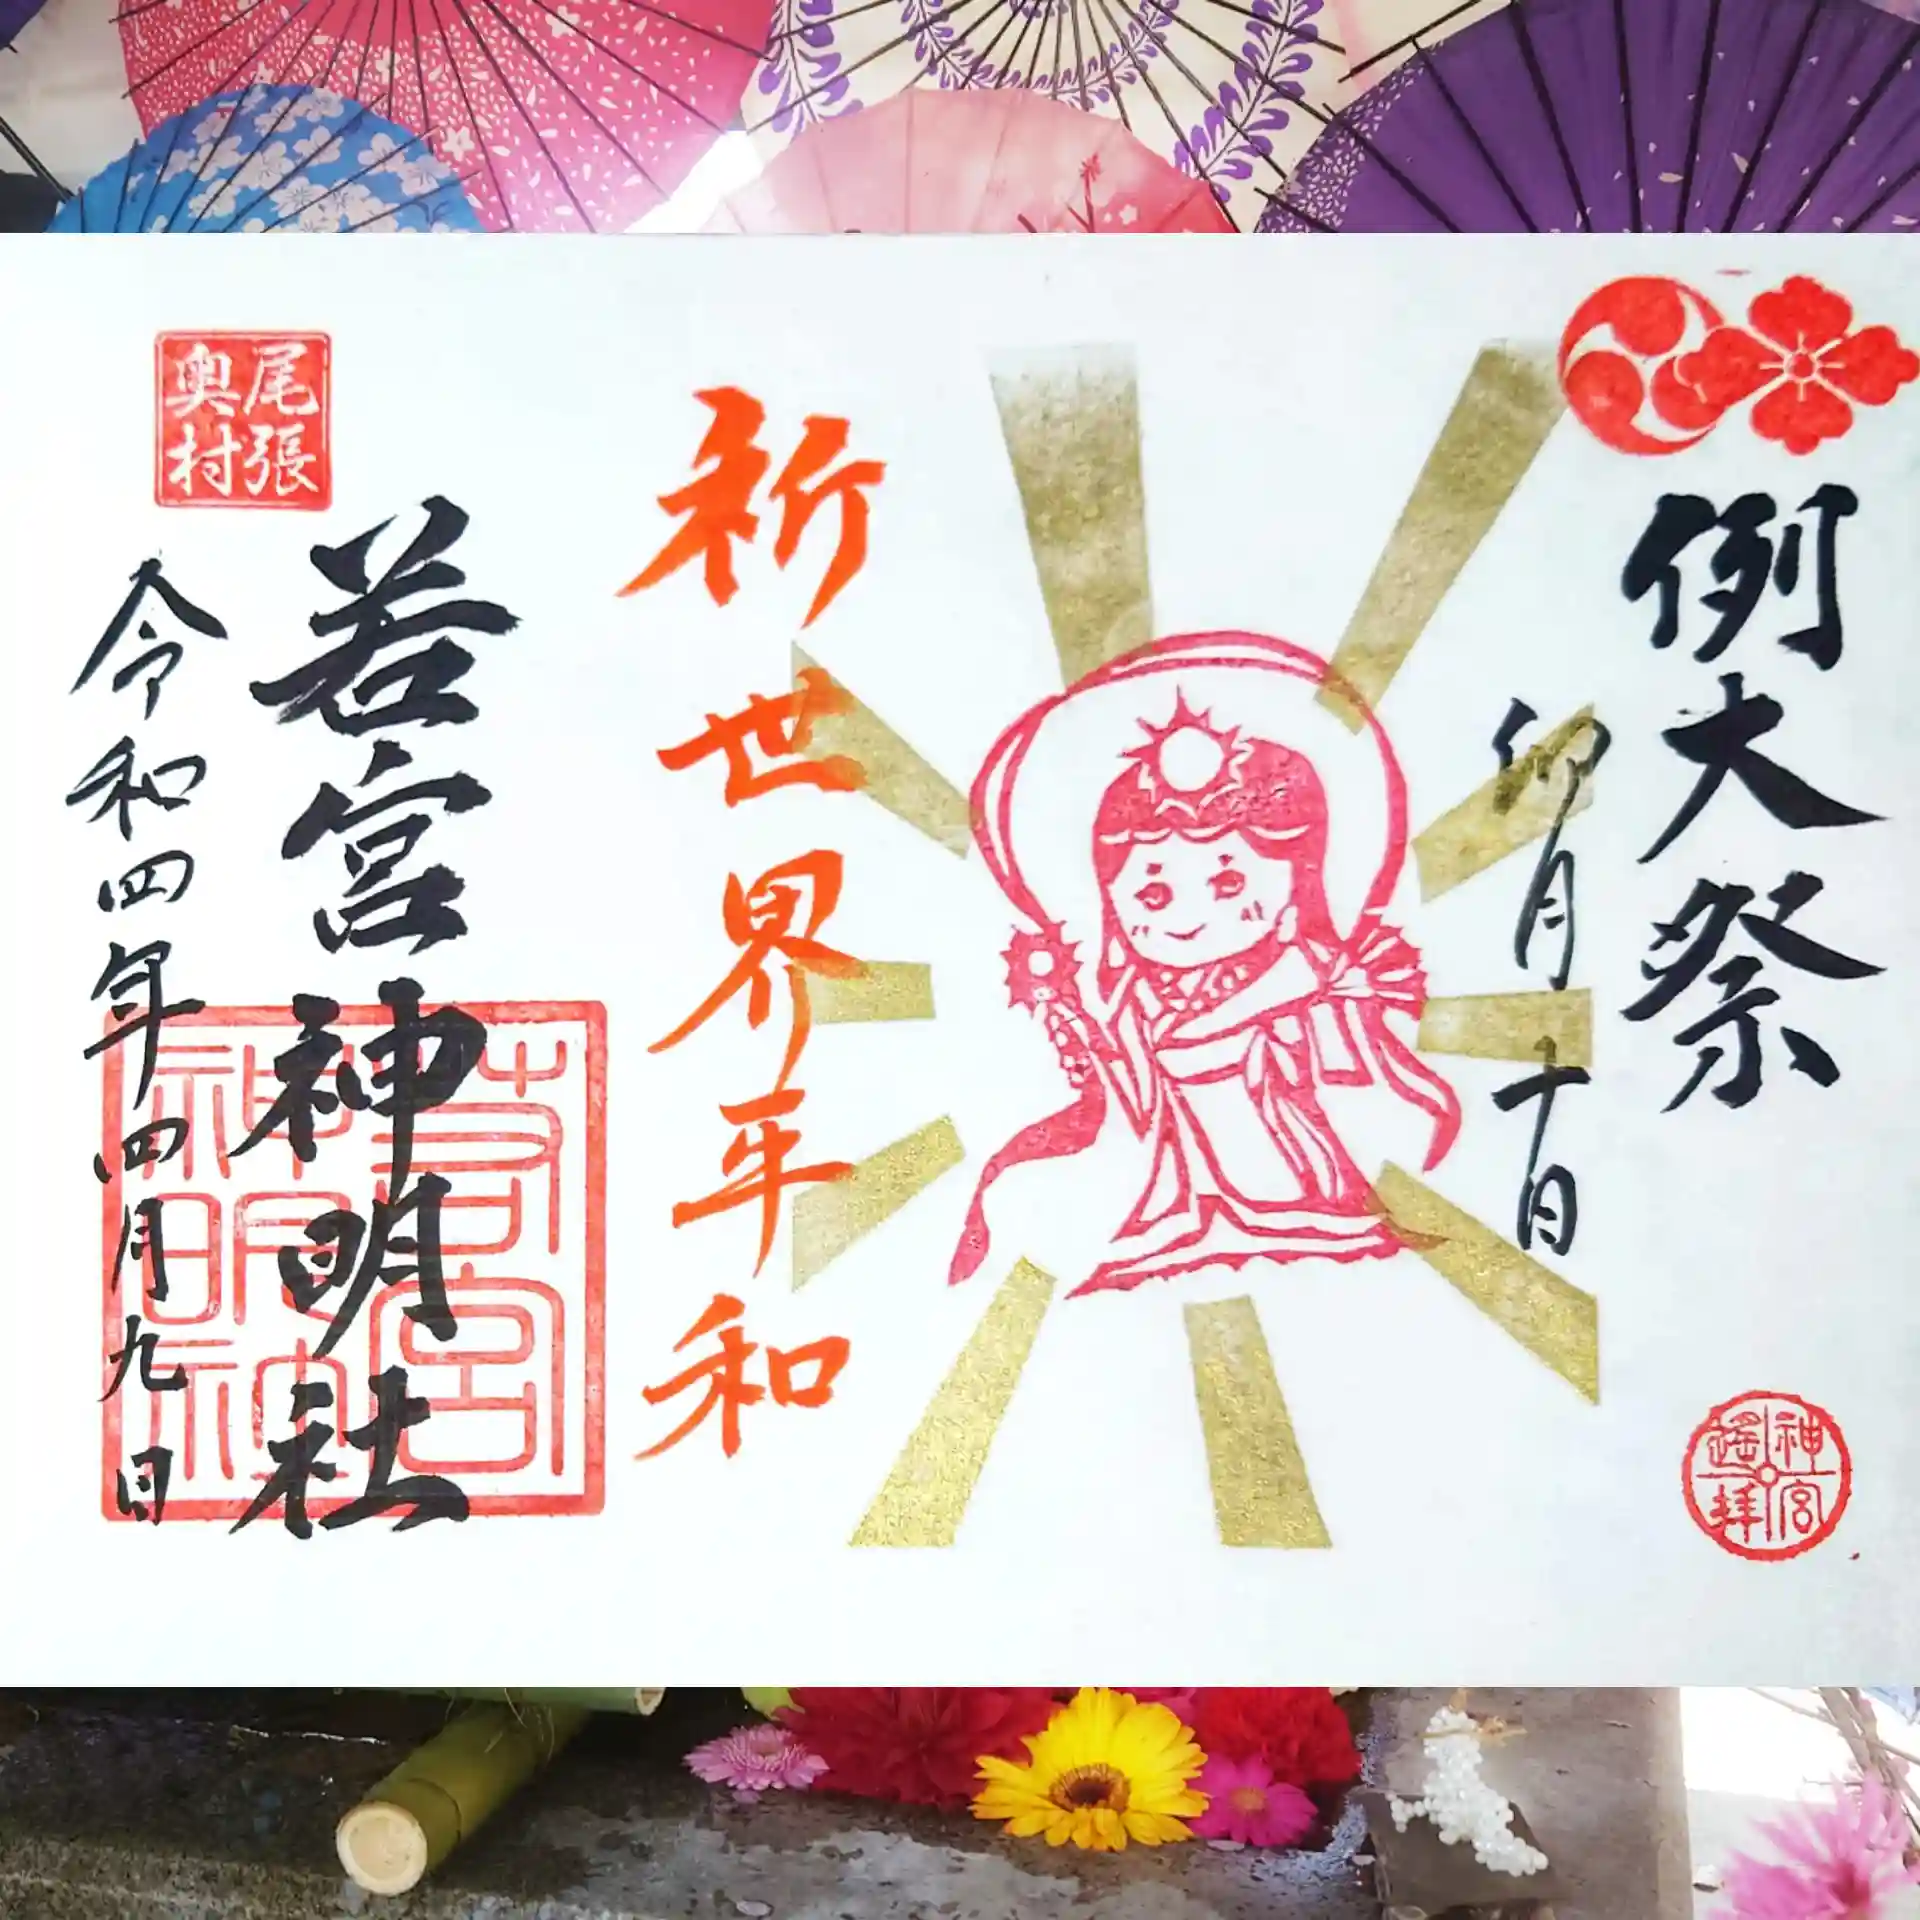 例大祭
卯月十日
神宮
遙拝
祈世界平和
若宮神明社
令和四年四月九日
尾張
奥村
若宮
神明社